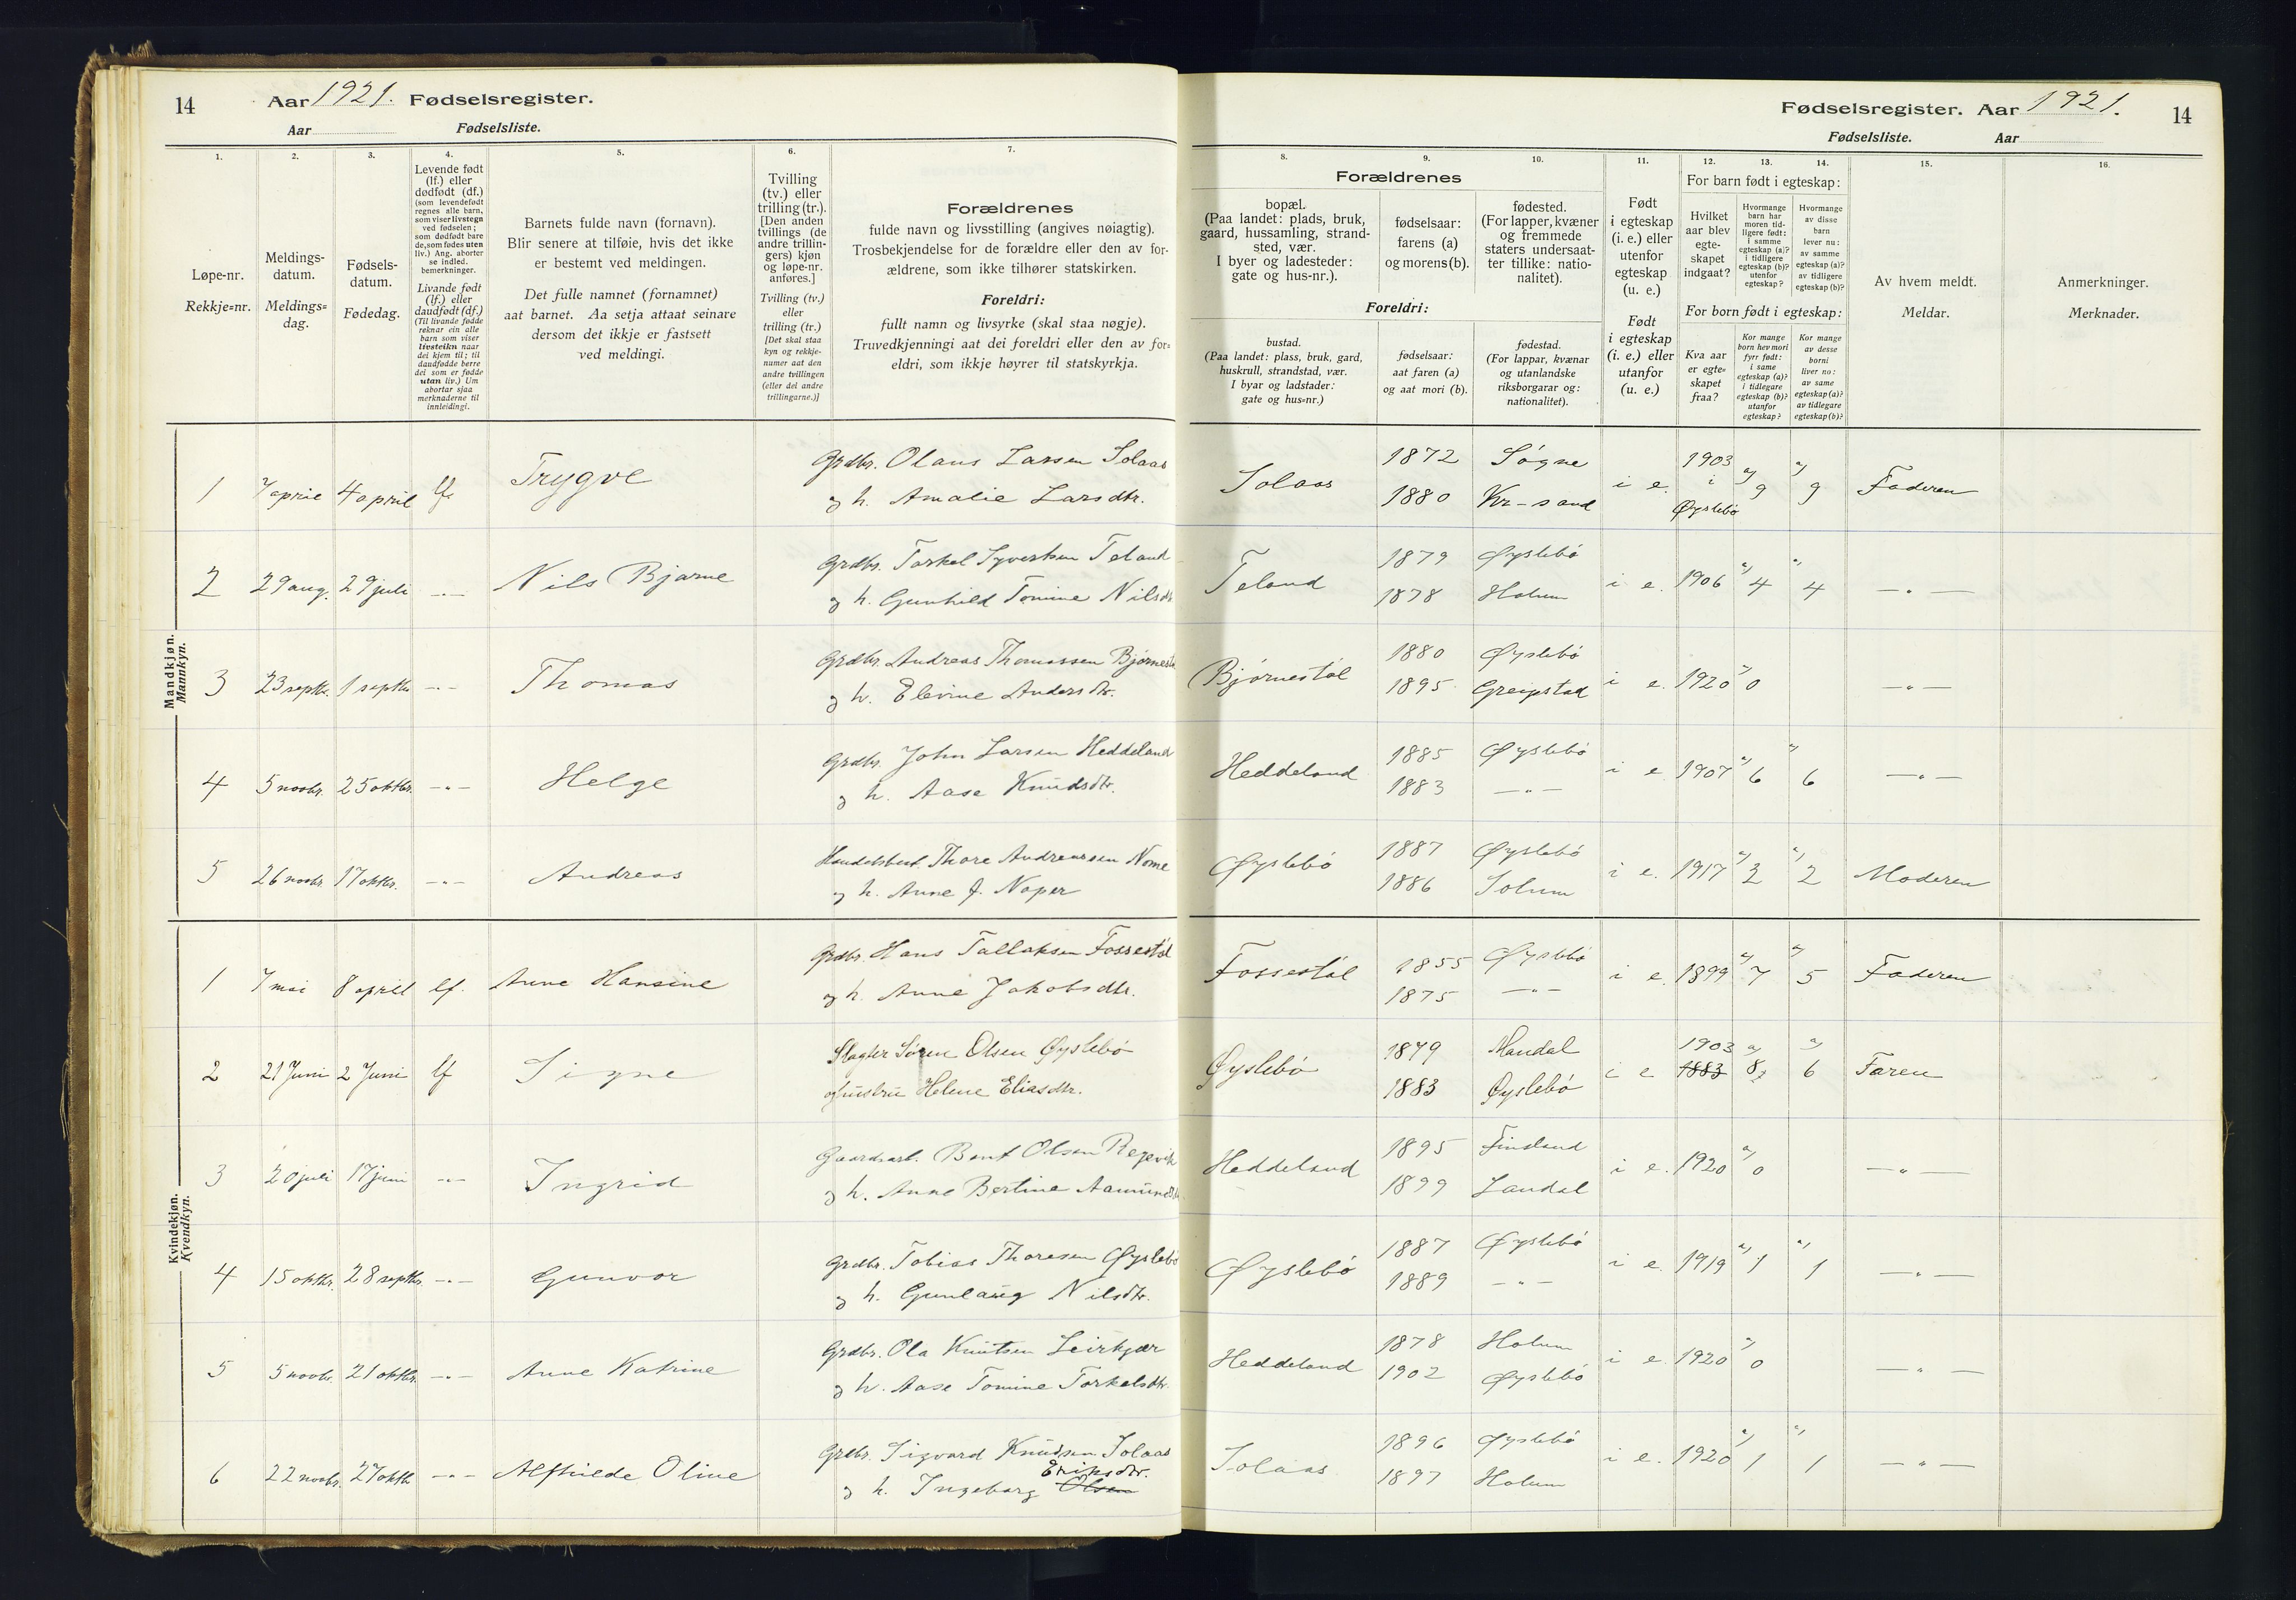 14 Aar 1921. Fødselsregister.
Aar Fødselsliste.
1. 2. 3. 4. 5. 6. 7.
Løpe-nr.
Rekkje=nr.
Meldings-
datum.
Meldings=
dag.
Fødsels-
datum.
Fødedag.
Levende født
(lf.) eller
dødfødt (df.)
(som levendefødt
regnes alle barn,
som viser livstegn
ved fødselen;
som dødfødt bare
de, som fødes uten
liv.) Ang. aborter
se indled.
bemerkninger.
Livande født
(lf.) eller
daudfødt (df.)
(Til livande fødde
reknar ein alle
barn som viser
livsteikn naar
dei kjem til; til
daudfødde berre
dei som er fødde
utan liv.) Um
abortar sjaa
merknaderne til
innleidingi.
Barnets fulde navn (fornavn).
Blir senere at tilføie, hvis det ikke
er bestemt ved meldingen.
Det fulle namnet (fornamnet)
aat barnet. Aa setja attaat seinare
dersom det ikkje er fastsett
ved meldingi.
Tvilling
(tv.) eller
trilling (tr.).
[Den anden
tvillings (de
andre trillin-
gers) kjøn
og løpe-nr.
anføres.]
Tvilling (tv.)
eller
trilling (tr.)
[Det skal staa
kyn og rekkje-
numer aat den
andre tvillingen
(eller dei andre
trillingarne.)]
Forældrenes
fulde navn og livsstilling (angives nøiagtig).
Trosbekjendelse for de forældre eller den av for-
ældrene, som ikke tilhører statskirken.
Foreldri:
fullt namn og livsyrke (skal staa nøgje).
Truvedkjenningi aat dei foreldri eller den av for=
eldri, som ikkje høyrer til statskyrkja.
Mandkjøn.
Mannkyn.
1 7 april 4 april lf. Trygve Grdbr. Olaus Larsen Solaas
og h. Amalie Larsdtr.
2 29 aug. 29 juli —"— Nils Bjarne Grdbr. Torkel Syvertsen Teland
og h. Gunhild Tomine Nilsdtr
3 23 septbr. 1 septbr —"— Thomas Grdbr. Andreas Thomassen Bjørnestøl
og h. Elevine Andersdtr.
4 5 novbr. 25 oktbr. —"— Helge Grdbr. John Larsen Heddeland
og h. Aase Knudsdtr.
5 26 novbr 17 oktbr. —"— Andreas Handelsbest. Thore Andreassen Nome
og h. Anne J. Naper
Kvindekjøn.
Kvendkyn.
1 7 mai 8 april lf. Anne Hansine Grdbr. Hans Tallaksen Fossestøl
og h. Anne Jakobsdtr.
2 21 Juni 2 Juni lf Signe Slagter Søren Olsen Øyslebö
og hustru Helene Eliasdtr.
3 20 juli 17 juni —"— Ingrid Gaardsarb. Bent Olsen Regevik
og h. Anne Bertine Aamundsdtr
4 15 oktbr. 28 septbr. —"— Gunvor Grdbr. Tobias Thoresen Øyslebö
og h. Gunlaug Nilsdtr.
5 5 novbr. 21 oktbr. —"— Anne Katrine Grdbr. Ola Knutsen Leirkjær
og h. Aase Tomine Torkelsdtr.
6 22 novbr. 27 oktb —"— Alfhilde Oline Grdbr. Sigvard Knudsen Solaas
Eriksdtr.
og h. Ingeborg Olsen
Fødselsregister. Aar 1921. 14
Fødselsliste. Aar
8. 9. 10. 11. 12. 13. 14. 15. 16.
Forældrenes
bopæl.
(Paa landet: plads, bruk,
gaard, hussamling, strand-
sted, vær.
I byer og ladesteder:
gate og hus-nr.).
fødselsaar:
farens (a)
og morens (b).
fødested.
(For lapper, kvæner
og fremmede
staters undersaat-
ter tillike: natio-
nalitet).
Foreldri:
bustad.
(Paa landet: plass, bruk, gard,
huskrull, strandstad, vær.
I byar og ladstader:
gate og hus=nr.)
fødselsaar:
aat faren (a)
og aat mori (b).
fødestad.
(For lappar, kvænar
og utanlandske
riksborgarar og:
nationalitet).
Født
i egteskap
(i. e.) eller
utenfor
egteskap
(u. e.)
Født
i egteskap
(i. e.) eller
utanfor
egteskap
(u. e.)
For barn født i egteskap:
Hvilket
aar blev
egte-
skapet
indgaat?
Hvormange
barn har
moren tid-
ligere født:
i samme
egteskap (a)?
i tidligere
egteskap (b)?
utenfor
egteskap?
Hvormange
av disse
barn
lever nu:
av samme
egteskap (a)?
av tidligere
egteskap (b)?
For born født i egteskap:
Kva aar
er egte=
skapet
fraa?
Kor mange
born hev mori
fyrr født:
i same
egteskap (a)?
i tidlegare
egteskap (b)?
utanfor
egteskap?
Kor mange
av desse
borni
liver no:
av same
egteskap (a)?
av tidlegare
egteskap (b)?
Av hvem meldt.
Meldar.
Anmerkninger.
Merknader.
Solaas 1872 Søgne i e. 1903 a) 9 a) 9 Faderen
1880 Kr-sand i Øyslebö
Teland 1879 Øyslebö i e. 1906 a) 4 a) 4 —"—
1878 Holum
Bjørnestøl 1880 Øyslebö i e. 1920 a) 0 —"—
1895 Greipstad
Heddeland 1885 Øyslebö i e. 1907 a) 6 a) 6 —"—
1883 —"—
Øyslebö 1887 Øyslebö i e. 1917 a) 2 a) 2 Moderen
1886 Solum
Fossestøl 1855 Øyslebö i e. 1899 a) 7 a) 5 Faderen
1875 —"—
Øyslebö 1879 Mandal i e 1903 a) 8 a) 6 Faren
1883 Øyslebö 1883
Heddeland 1895 Finsland i e. 1920 a) 0 —"—
1899 Laudal
Øyslebö 1887 Øyslebö i e. 1919 a) 1 a) 1 —"—
1889 —"—
Heddeland 1878 Holum i e. 1920 a) 0 —"—
1902 Øyslebö
Solaas 1896 Øyslebö i e. 1920 a) 1 a) 1 —"—
1897 Holum